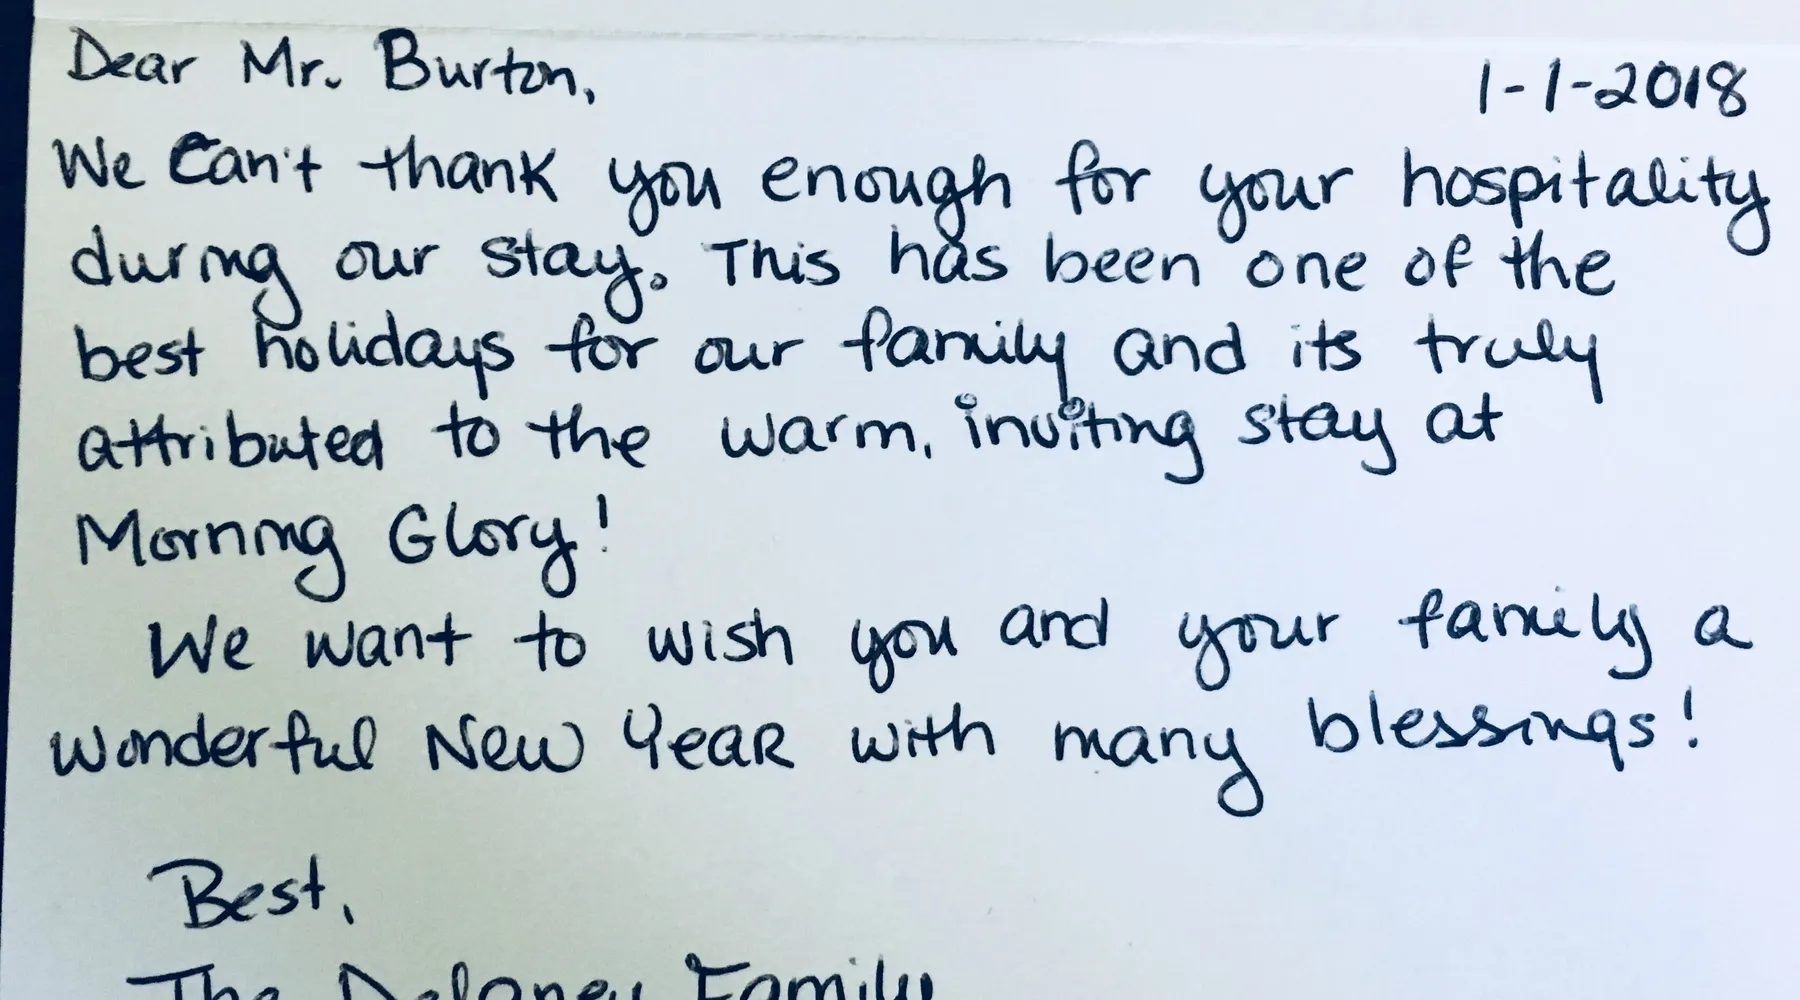 Dear Mr. Burton, 1-1-2018
We Can't thank you enough for your hospitality
during our stay. This has been one of the
best holidays for our family and its truly
attributed to the warm, inviting stay at
Morning Glory!
We want to wish you and your family a
wonderful New Year with many blessings!
Best,
The Delaney Family